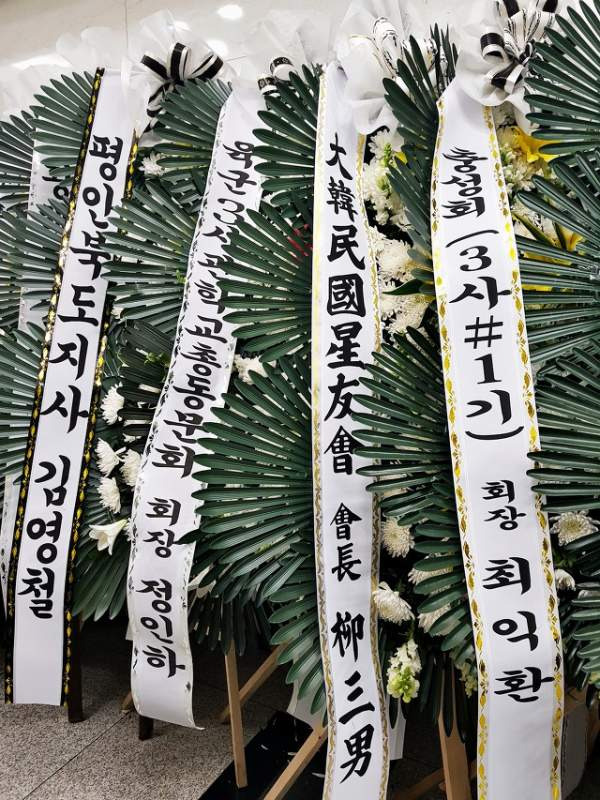 평안북도지사 김영철
육군3사관학교총동문회 회장 정인하
大韓民國星友會 會長 柳三男
충성회 (3사#1기) 회장 최익환